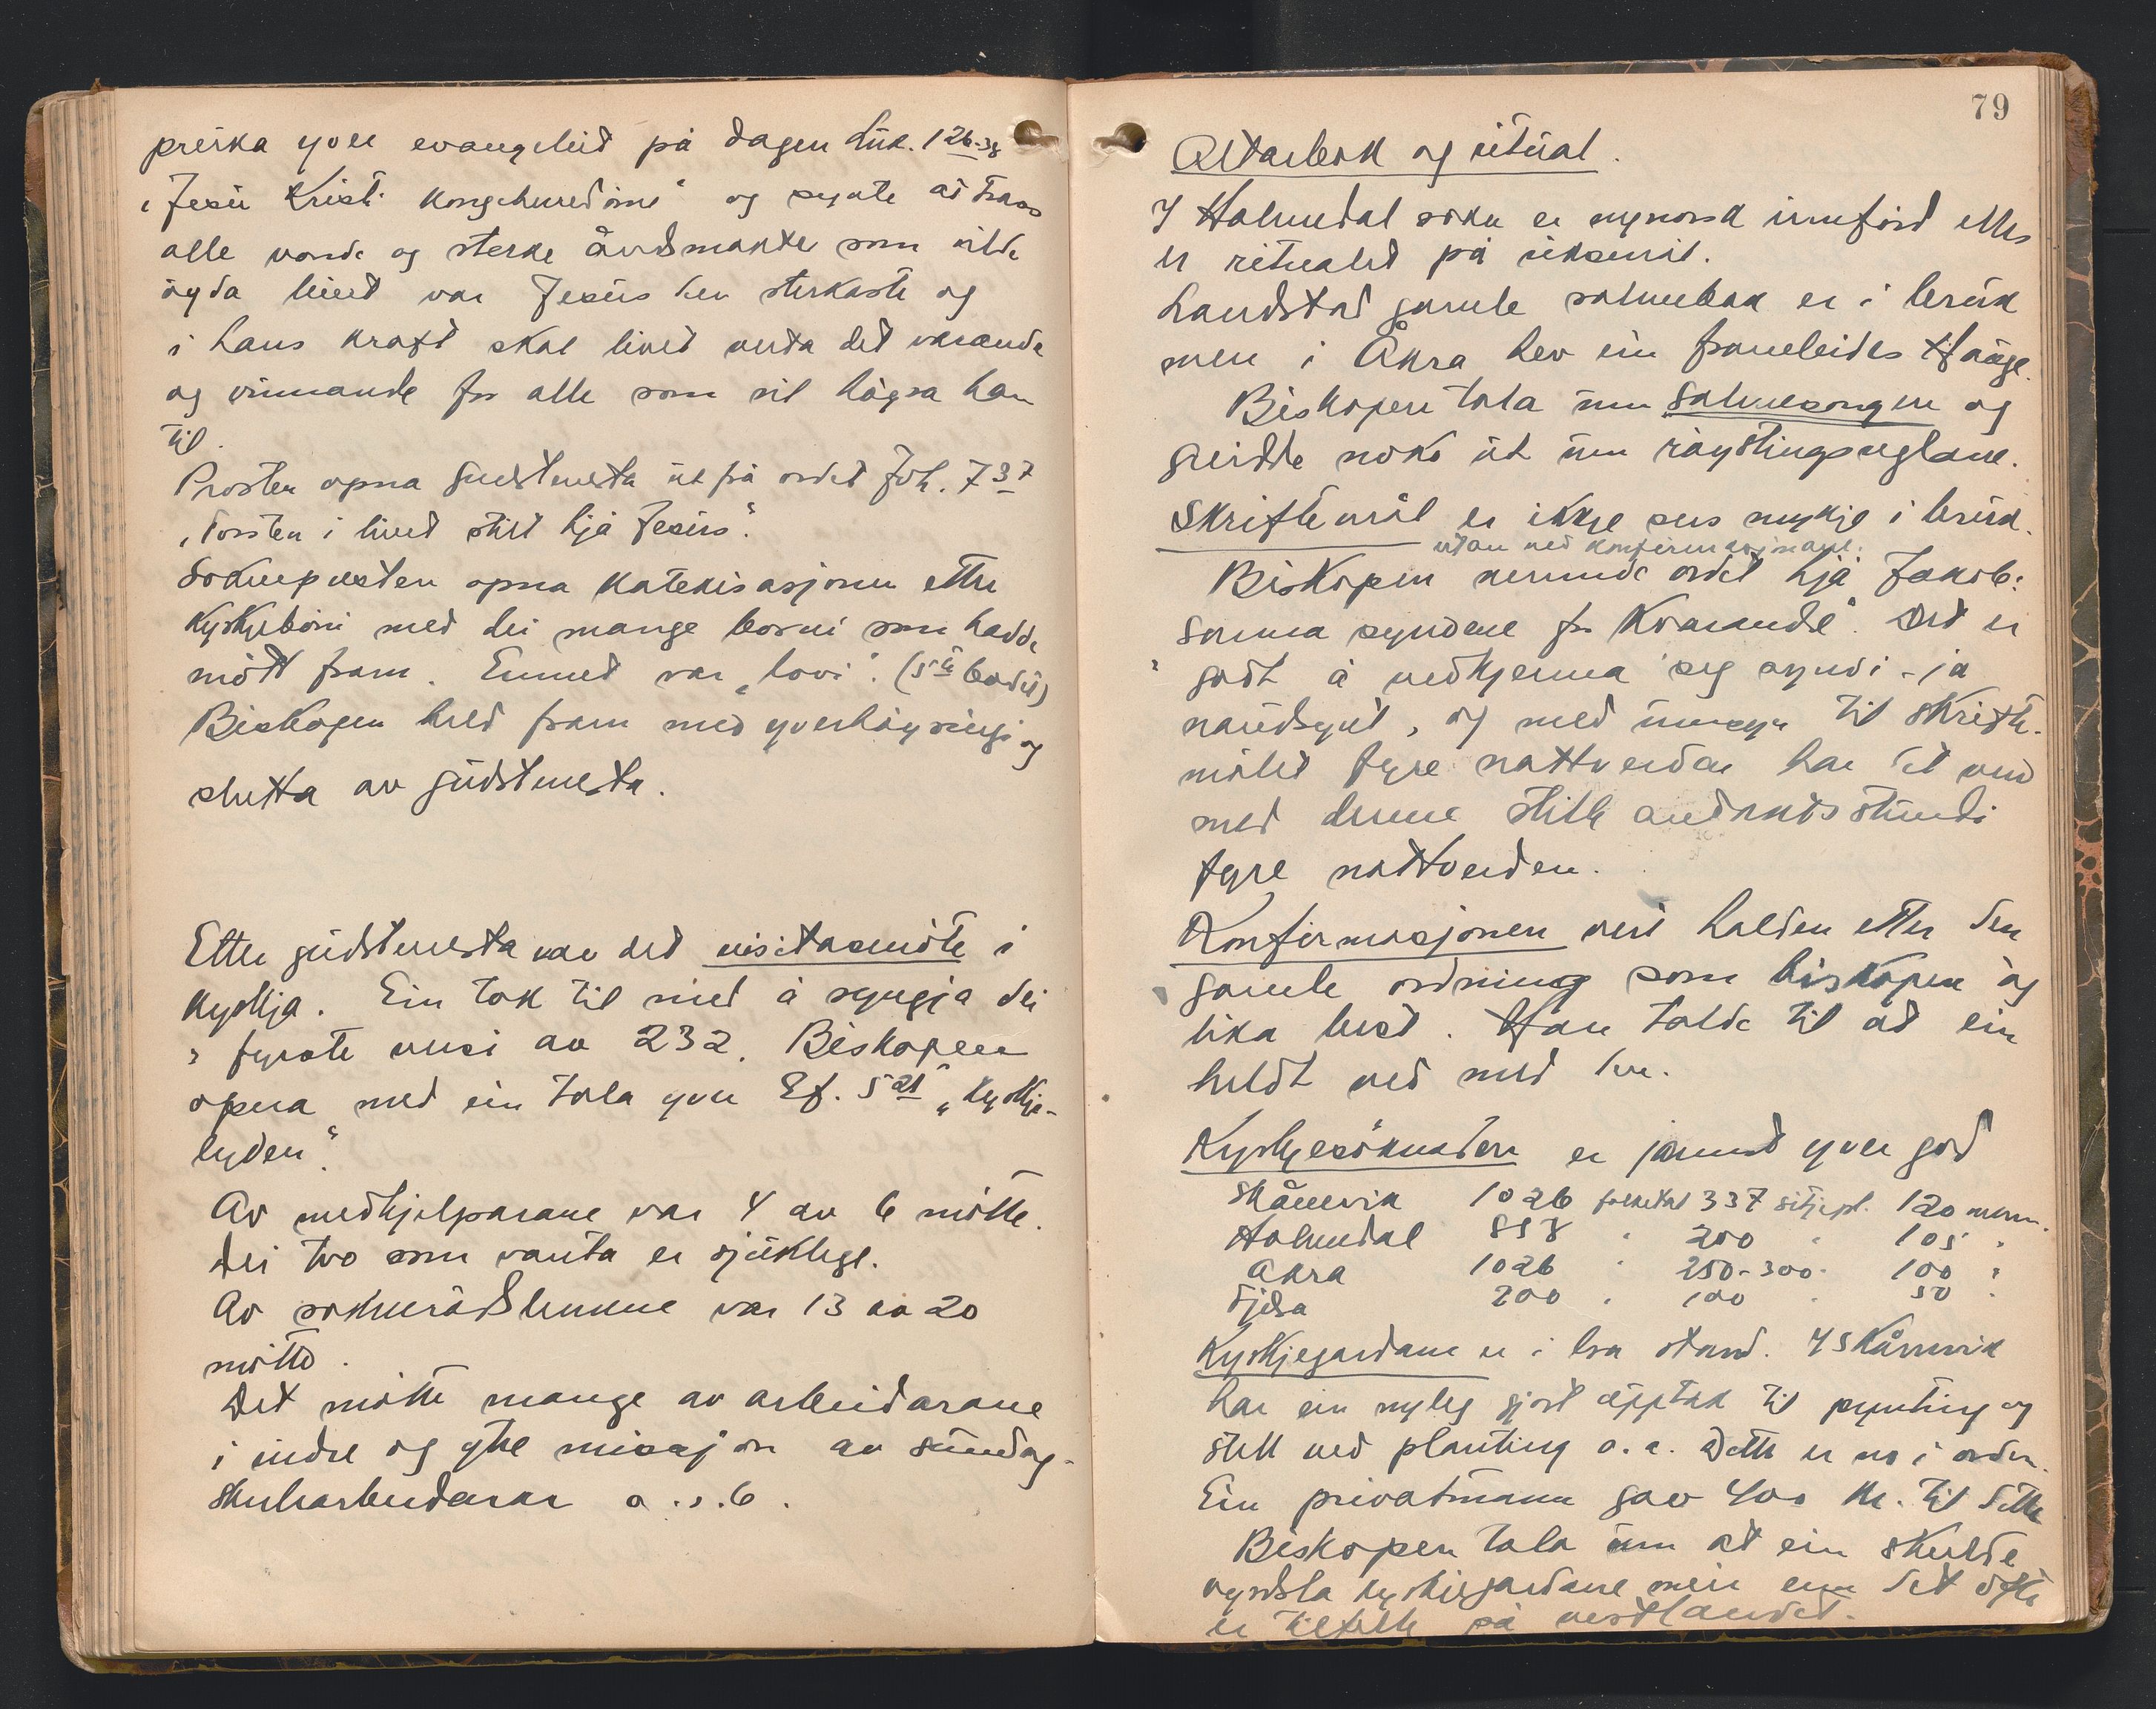 preika yver evangeliet på dagen Luk. 1 26-38
„Jesu Kristi kongeherredöme" og synte at trass
alle vonde og sterke åndsmakter som vilde
öyda livet var Jesus den sterkaste og
i hans kraft skal livet verta det varande
og vinnande for alle som vil höyra han
til.
Prosten opna gudstenesta ut frå ordet Joh. 7 37
„Torsten i livet stilt hjå Jesus".
Soknepresten opna katekisasjonen etter
kyrkjeböni med dei mange borni som hadde
mött fram. Emnet var „lovi". (5te bodet)
Biskopen held fram med yverhöyringi og
slutta av gudstenesta.
Etter gudstenesta var det visitasmöte i
kyrkja. Ein tok til med å syngja dei
3 fyrste versi av 232. Biskopen
opna med ein tala yver Ef. 5 21 „Kyrkje-
lyden".
Av medhjelparane var 4 av 6 mötte.
Dei two som vanta er sjuklege.
Av sokneråds lemene var 13 av 20
mötte.
Det mötte mange av arbeidarane
i indre og ytre misjon av sundag-
skularbeidarar o.s.b.
79
Altarbok og ritual.
I Holmedal sokn er nynorsk innförd elles
er ritualet på riksmål.
Landstad gamle salmebok er i bruk
men i Åkra hev ein framleides Hauge.
Biskopen tala um salmesongen og
greidde noko ut um röystingsreglane.
Skriftemål er ikkje sers mykje i bruk.
utan ved konfirmasjonane.
Biskopen nemnde ordet hjå Jakob:
sanna syndene for kvarandre". Det er
godt å vedkjenna seg syndi - ja
naudsynt, og med umsyn til skrifte-
målet fyre nattverden har det vore
med denne stille andaktsstundi
fyre nattverden.
Konfirmasjonen vert halden etter den
gamle ordning som biskopen og
lika best. Han talde til at ein
heldt ved med den.
Kyrkjesöknaden er jamnt yver god
Skånevik 1026 folketal 337 sitjepl. 120 menn.
Holmedal 858 " 200 " 105 "
Åkra 1026 " 250-300 " 100 "
Fjæra 200 " 100 " 50 "
Kyrkjegardane er i bra stand. I Skånevik
har ein nyleg gjort upptak til pynting og
stell ved planting o.a. Dette er no i orden.
Ein privatmann gav 400 kr. til dette
Biskopen tala um at ein skulde
vyrdsla kyrkjegardane meir enn det ofte
er tilfelle på vestlandet.